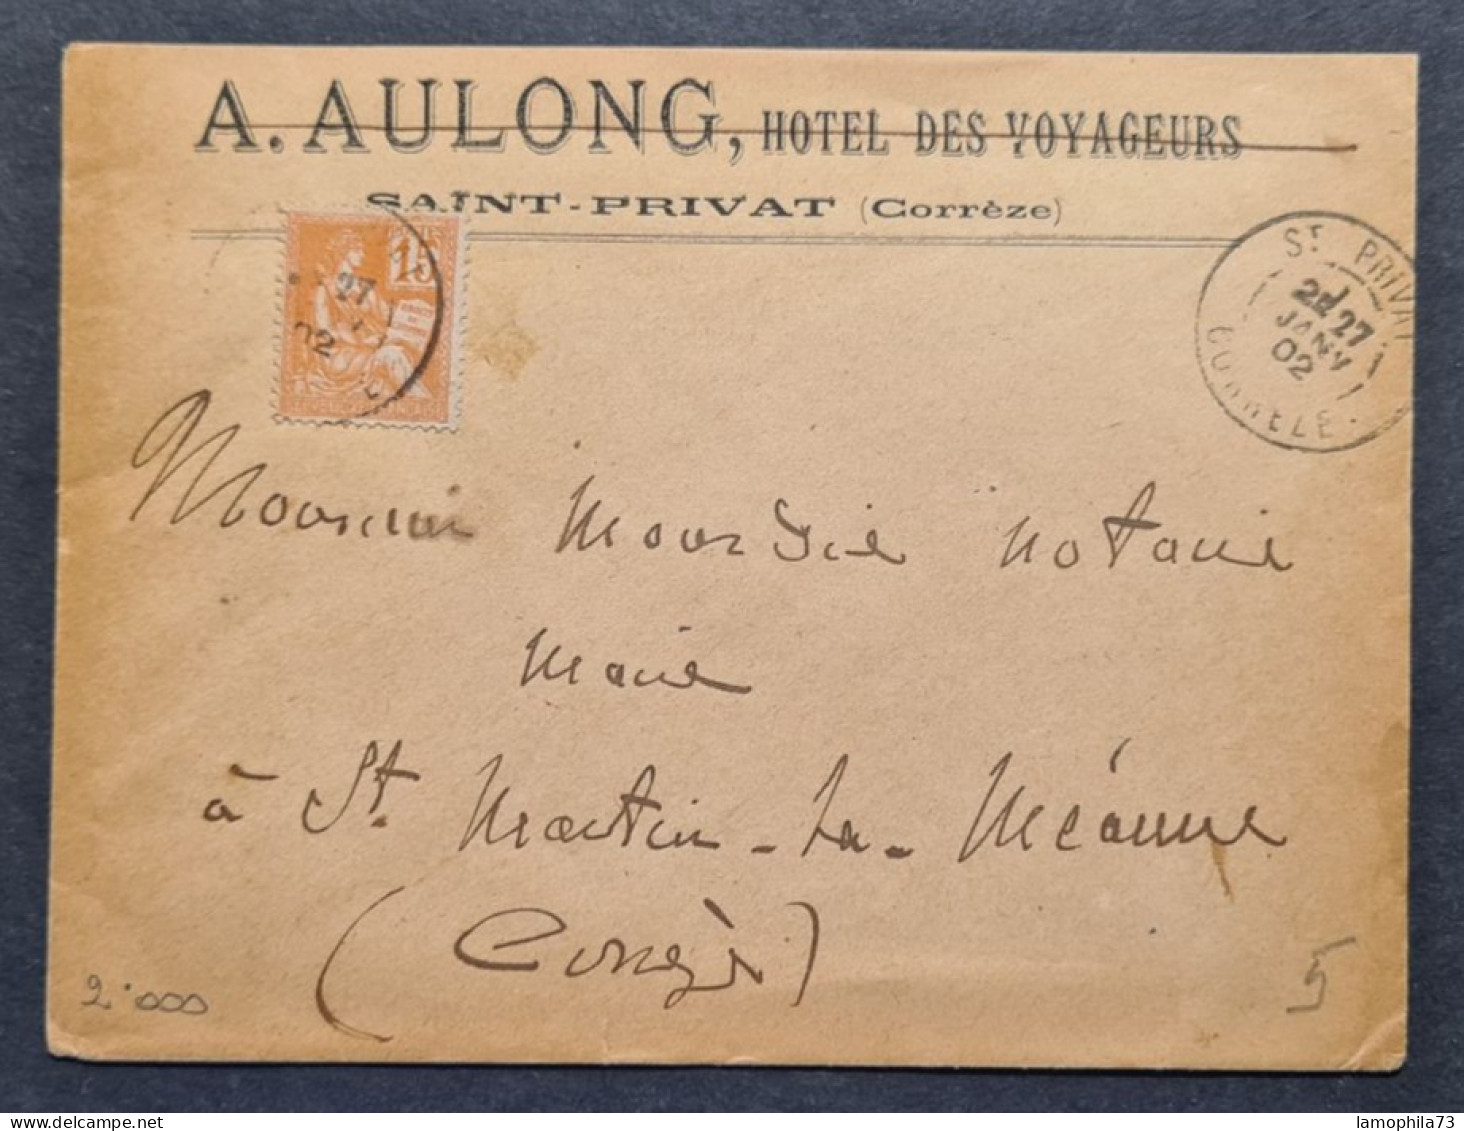 A. AULONG, HOTEL DES VOYAGEURS
SAINT-PRIVAT (Corrèze)
15
27
02
ST PRIVAT
2E 27
JANV
02
CORREZE
Monsieur notaire
Maire
à St. Martin-la-Méanne
(Corrèze)
2.000
5
lamophila73